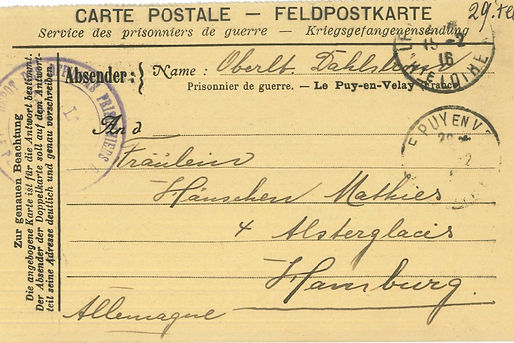 CARTE POSTALE – FELDPOSTKARTE
29.
Service des prisonniers de guerre – Kriegsgefangenensendung
Absender: Name: Oberlt. Dahls
Prisonnier de guerre. – Le Puy-en-Velay (France)
16
LOIRE
LE PUY EN V
PRISONNIERS
And
Fräulein
Hänschen Mathies
4 Alsterglacis
Hamburg.
Allemagne
Zur genauen Beachtung
Die angebogene Karte ist für die Antwort bestimmt.
Der Absender der Doppelkarte soll auf dem Antwort-
teil seine Adresse deutlich und genau vorschreiben